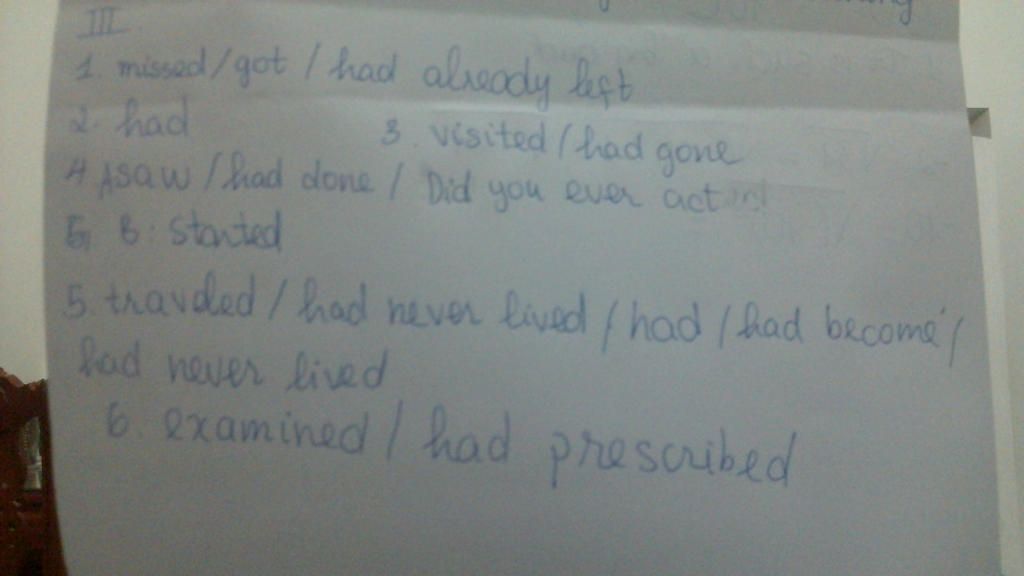 III
1. missed/got / had already left
2. had 3. visited / had gone
4 A saw / had done / Did you ever act
5, B: started
5. traveled / had never lived / had / had become /
had never lived
6. examined / had prescribed